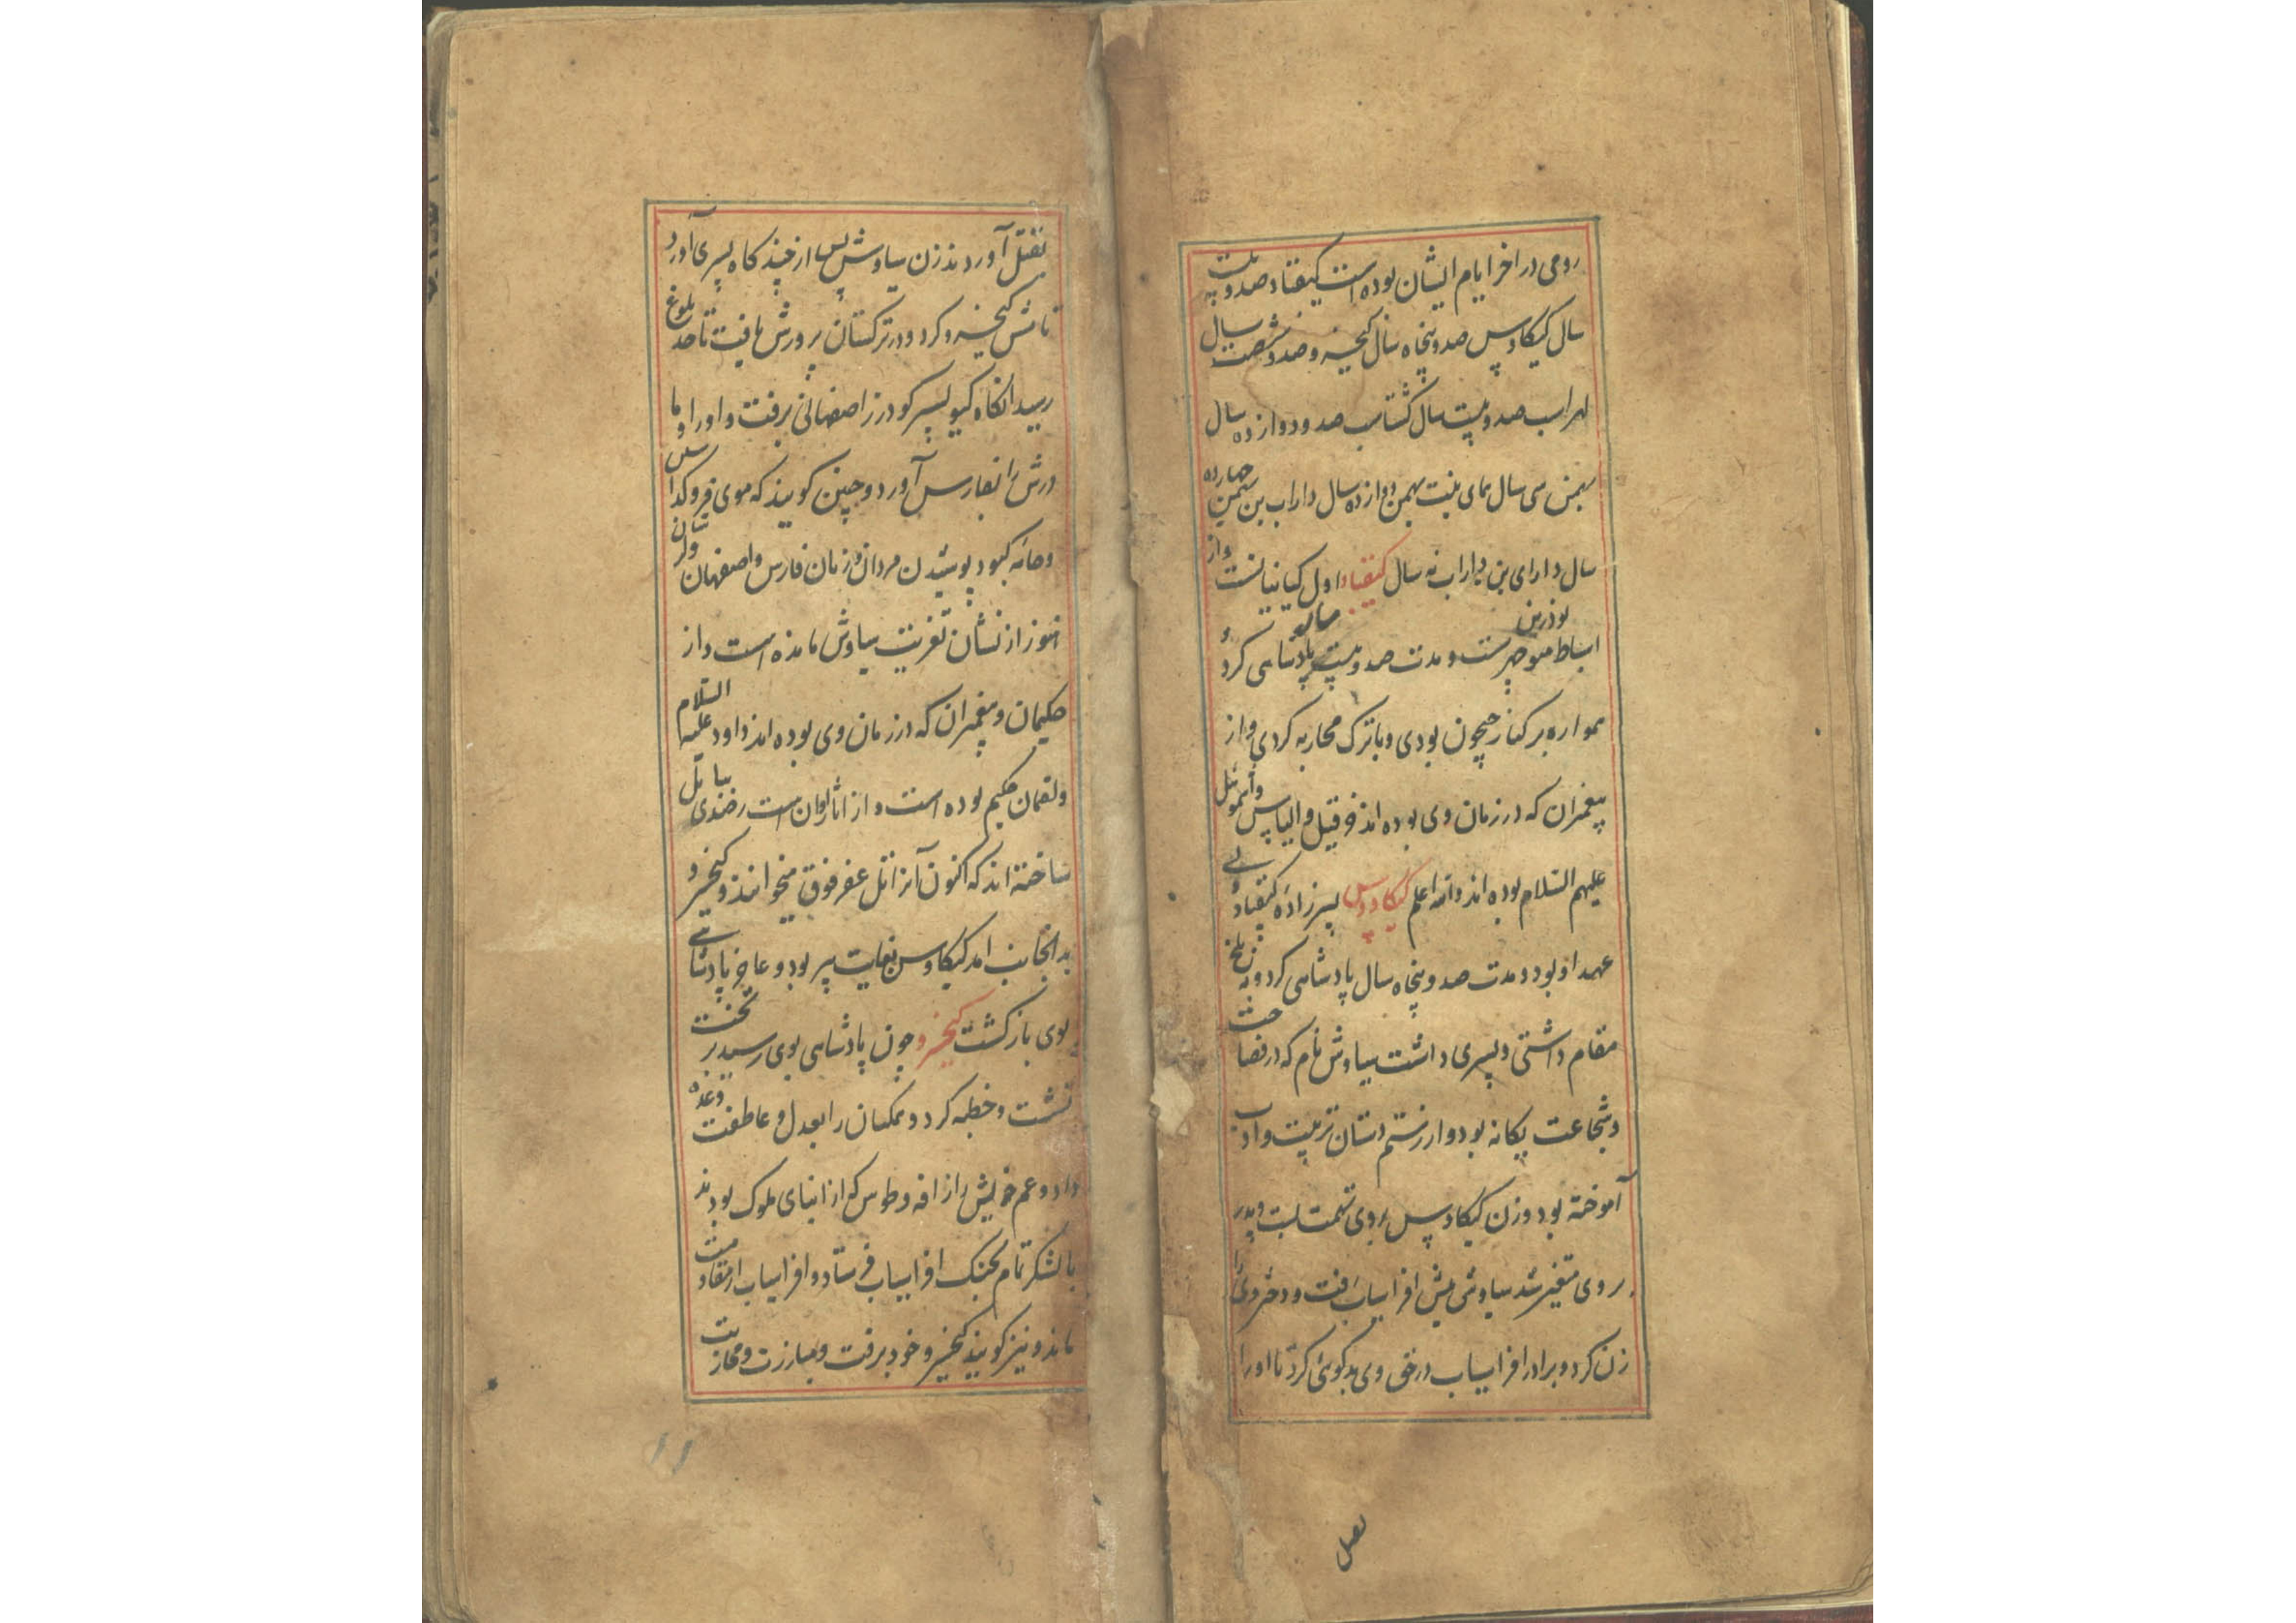 رومی در اخر ایام ایشان بوده است کیقباد صد و بیست
سال کیکاوس صد و پنجاه سال کیخسرو صد و شصت سال
لهراسب صد و بیست سال گشتاسب صد و دوازده سال
بهمن سی سال همای بنت بهمن دوازده سال داراب بن بهمن چهارده
سال دارای بن داراب نه سال کیقباد اول کیانیانست و از
اسباط نوذر بن منوچهرست و مدت صد و بیست سال پادشاهی کرد و
همواره بر کنار جیحون بودی و با ترک محاربه کردی و از
پیغمبران که در زمان وی بوده اند حزقیل و الیاس و اشموئیل
علیهم السلام بوده اند والله اعلم کیکاووس پسرزاده کیقباد و لی
عهد او بود و مدت صد و پنجاه سال پادشاهی کرد و به بلخ
مقام داشتی و پسری داشت سیاوش نام که در فصاحت
و شجاعت یکانه بود و از رستم دستان تربیت و ادب
آموخته بود و زن کیکاوس بر وی تهمت بست و پدر
بر وی متغیر شد سیاوش پیش افراسیاب رفت و دختر ویرا
زن کرد و برادر افراسیاب در حق وی بدکوئی کرد تا او را
بقتل
بقتل آوردند زن سیاوش پس از چند کاه پسری آورد
نامش کیخسرو کرد و در ترکستان پرورش یافت تا حد بلوغ
رسید انکاه کیو پسر کودرز اصفهانی برفت و او را و ما
درش را بفارس آورد و چنین کویند که موی فرو کداشتن
و جامه کبود پوشیدن مردان و زنان فارس و اصفهان و لرستان
هنوز از نشان تعزیت سیاوش مانده است و از
حکیمان و پیغمبران که در زمان وی بوده اند داود علیه السلام
و لقمان حکیم بوده است و از اثار اوان است رصدی ببابل
ساخته اند که اکنون آنرا تل عقرقوف میخوانند و کیخسرو
بدانجانب امد کیکاوس بغایت پیر بود و عاجز پادشاهی
بوی بازکشت کیخسرو چون پادشاهی بوی رسید بر تخت
نشست و خطبه کرد و همکنان را بعدل و عاطفت وعده
داد و عم خویش را زافه و طوس که از ابنای ملوک بودند
با لشکر تمام بجنک افراسیاب فرستاد و افراسیاب از مقاومت
ماند و نیز کویند کیخسرو خود برفت و مبارزت و محاربت